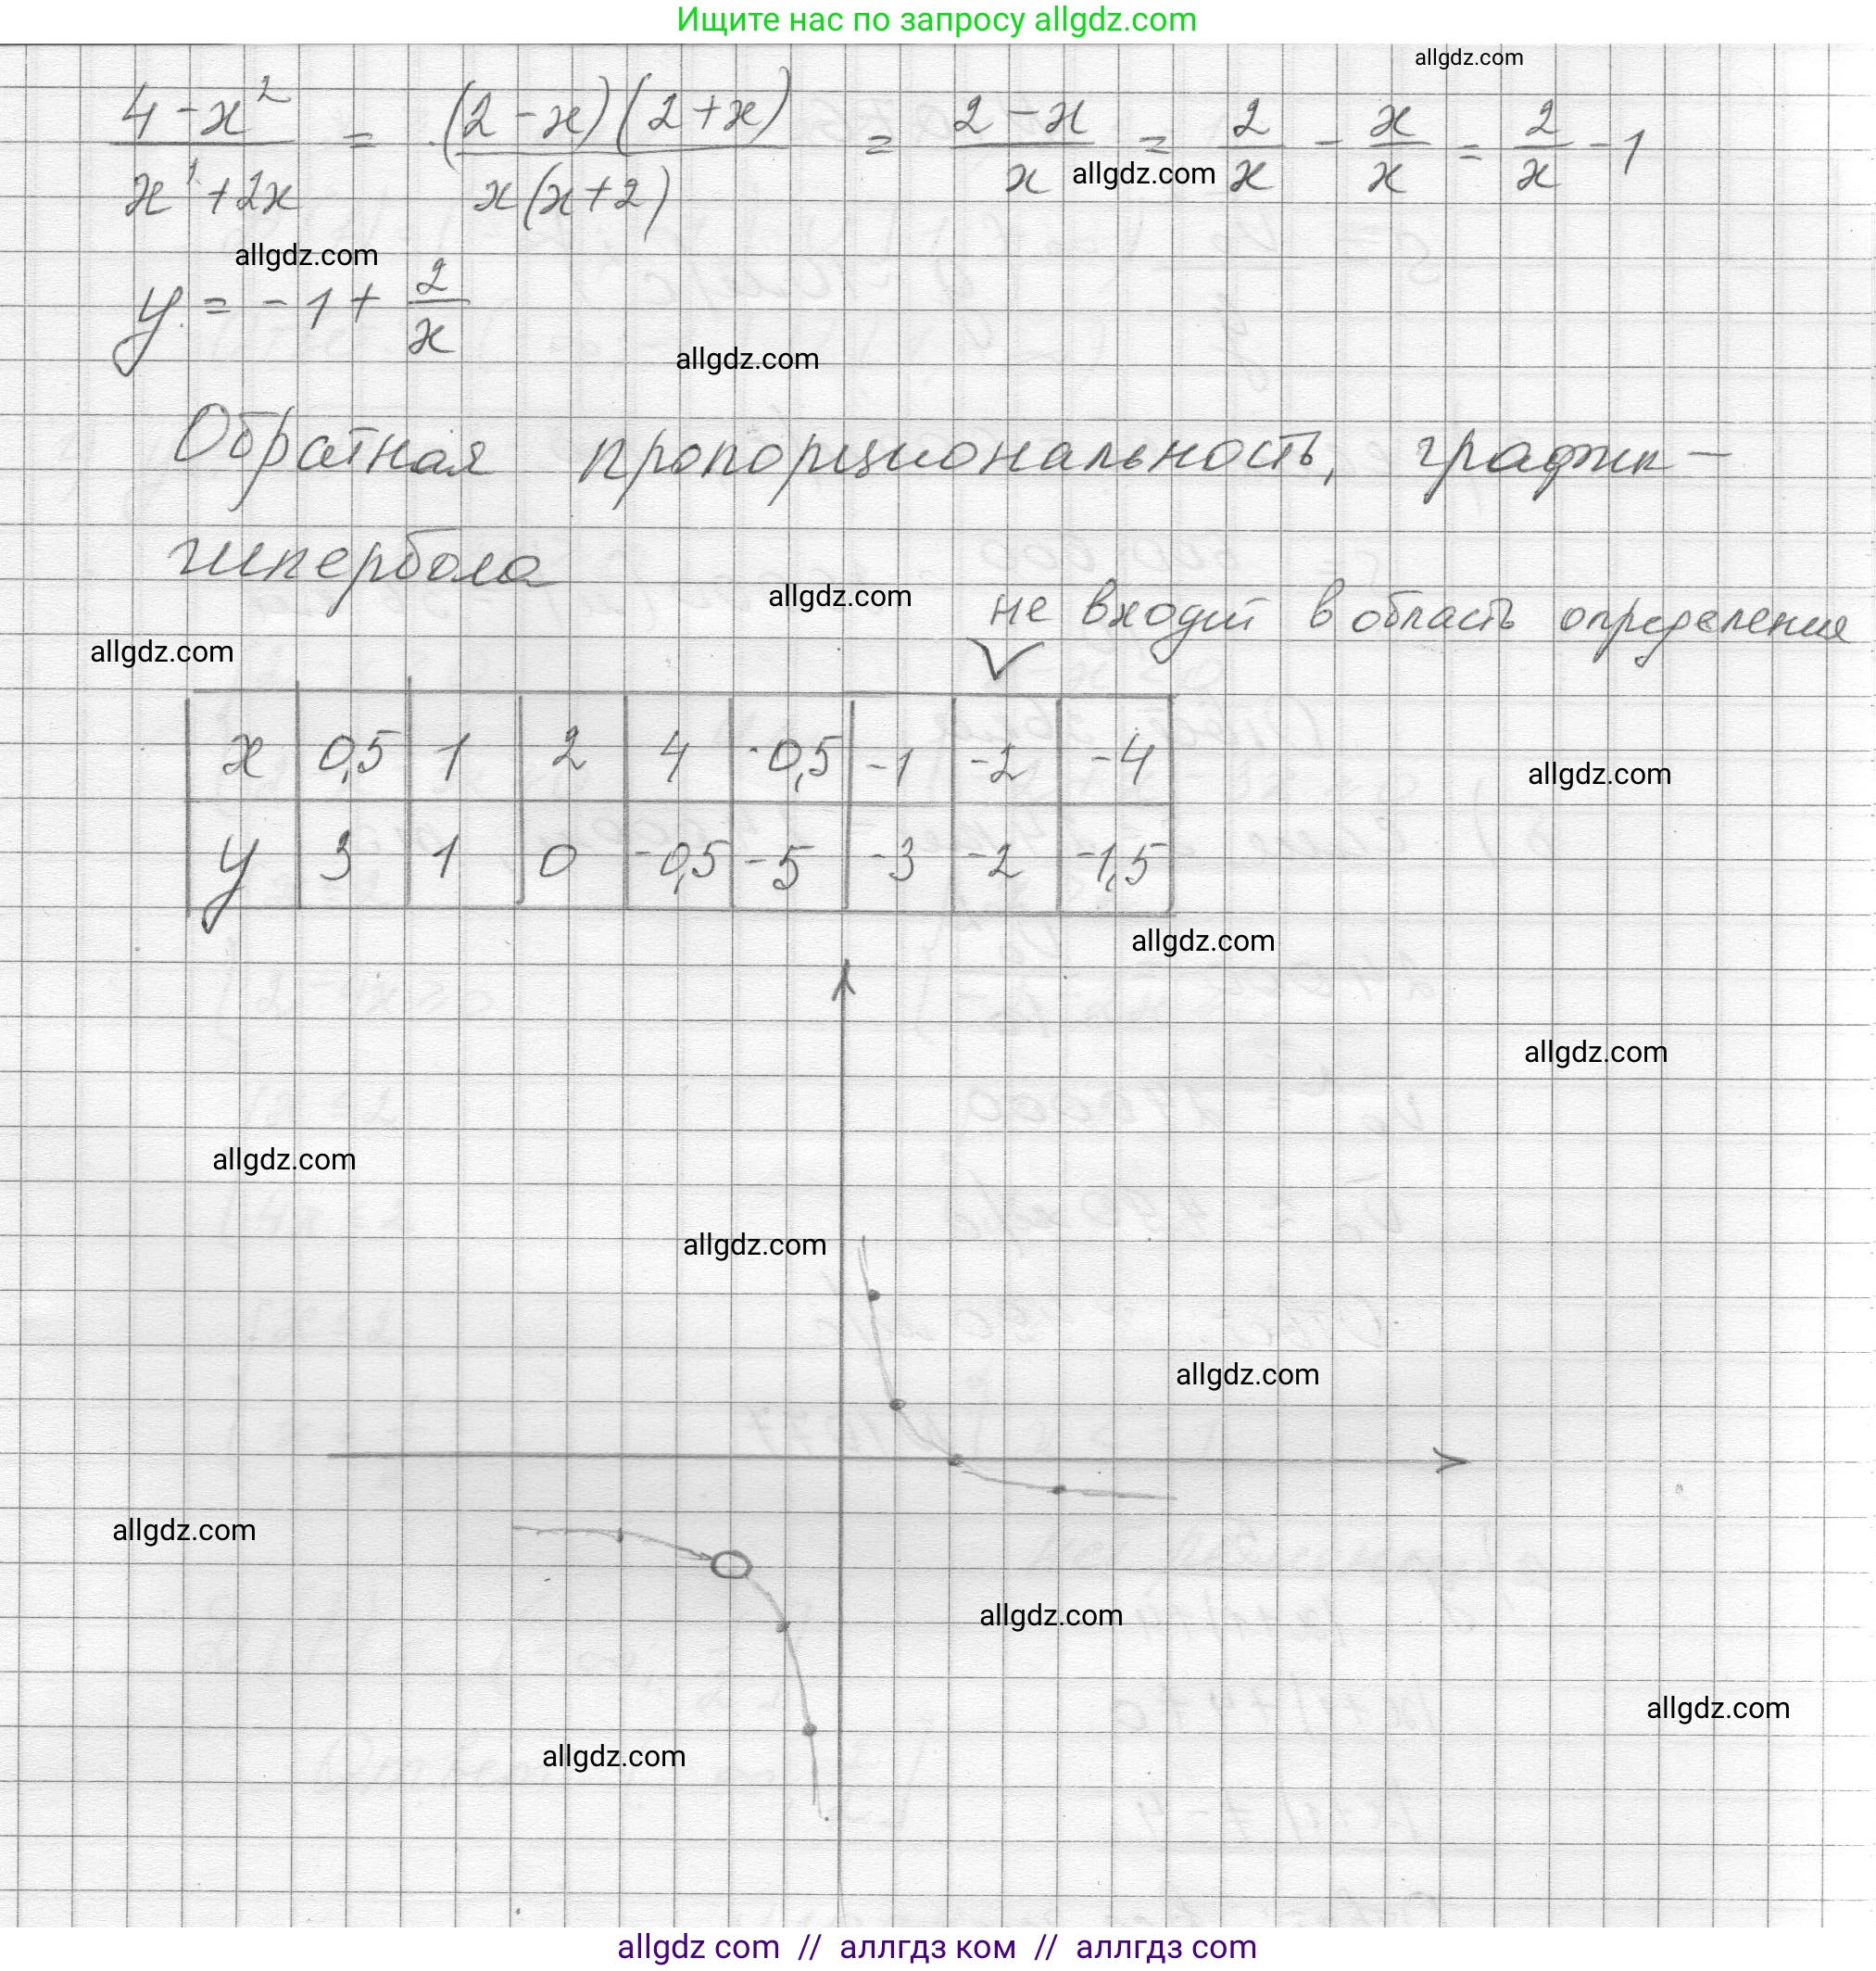 Ищите нас по запросу allgdz.com
allgdz.com
(4 - x²)/(x² + 2x) = ((2 - x)(2 + x))/(x(x + 2)) = (2 - x)/x = 2/x - x/x = 2/x - 1
allgdz.com
allgdz.com
y = -1 + 2/x
allgdz.com
Обратная пропорциональность, график -
гипербола
allgdz.com
не входит в область определения
allgdz.com
x 0,5 1 2 4 -0,5 -1 -2 -4
allgdz.com
y 3 1 0 -0,5 -5 -3 -2 -1,5
allgdz.com
allgdz.com
allgdz.com
allgdz.com
allgdz.com
allgdz.com
allgdz.com
allgdz.com
allgdz.com
allgdz com // аллгдз ком // аллгдз com